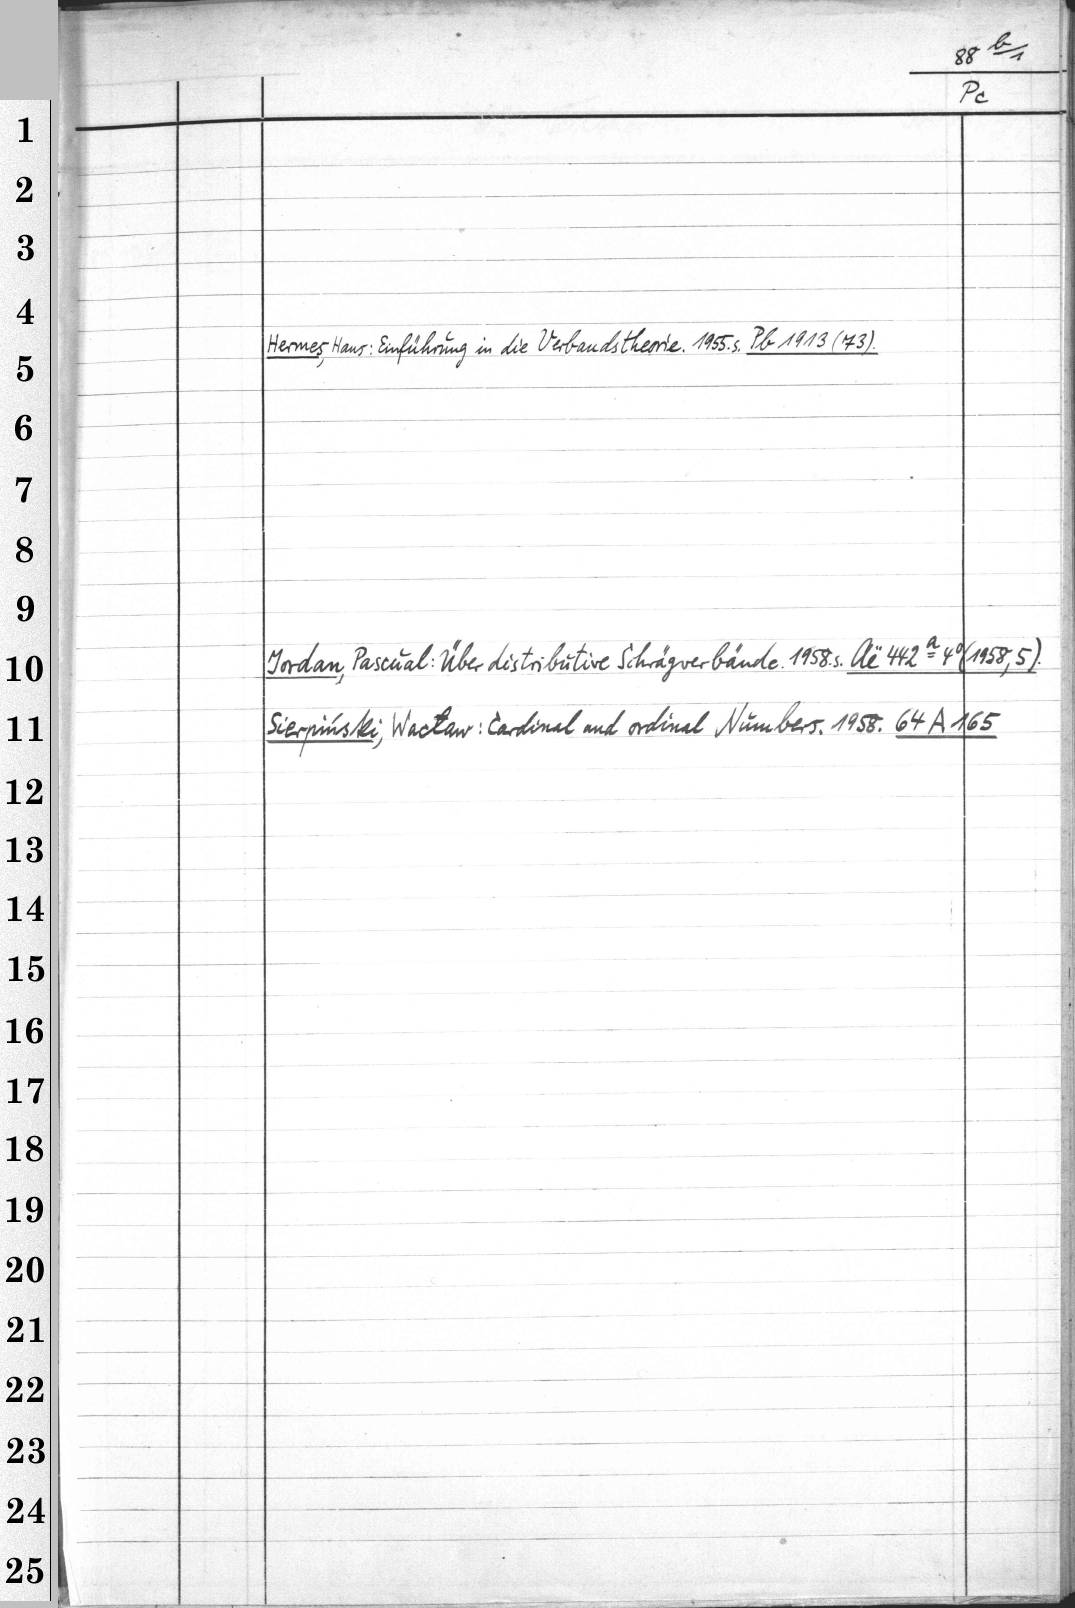 88 b/1
Pc
1
2
3
4
Hermes, Hans: Einführung in die Verbandstheorie. 1955. s. Pb 1913 (73).
5
6
7
8
9
10 Jordan, Pascual: Über distributive Schrägverbände. 1958. s. Aë 442 a 4° (1958, 5).
11 Sierpiński, Wacław: Cardinal and ordinal Numbers. 1958. 64 A 165
12
13
14
15
16
17
18
19
20
21
22
23
24
25